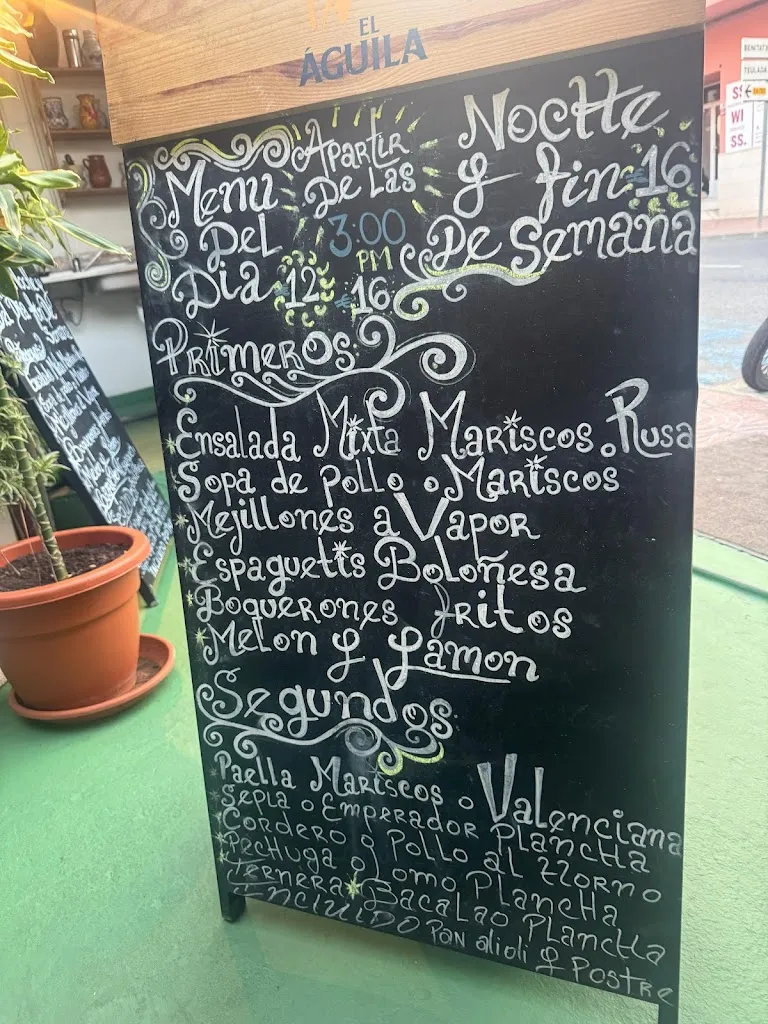 EL
ÁGUILA
Menu
Del
Dia 12
Apartir
De Las
3:00
PM
€ 16
Nocтte
y fin €16
De Semana
Primeros
Ensalada Mixta Mariscos o Rusa
Sopa de Pollo o Mariscos
Mejillones a Vapor
Espaguetis Boloñesa
Boquerones fritos
Melon y Jamon
Segundos
Paella Mariscos o Valenciana
Sepia o Emperador Plancha
Cordero o Pollo al Horno
Pechuga o Lomo Plancha
Ternera Bacalao Plancha
INCIUIDO Pan alioli y Postre
BENITATX
TEULADA
WI
SS.